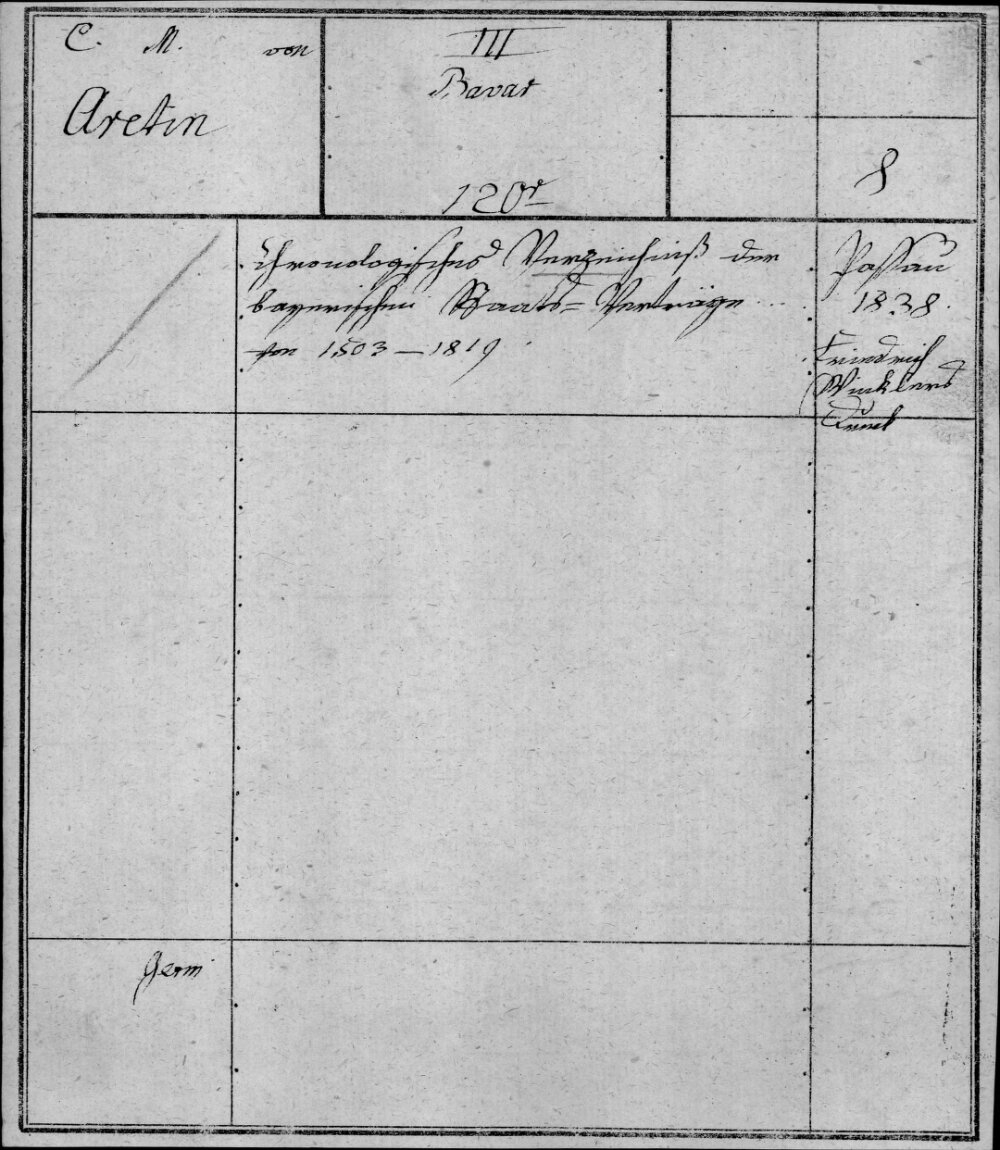 C. M. von
Aretin
III
Bavar
120r
8
Chronologisches Verzeichniß der
bayerischen Staats=Verträge
von 1503—1819
Passau
1838.
Friedrich
Winklers
Germ